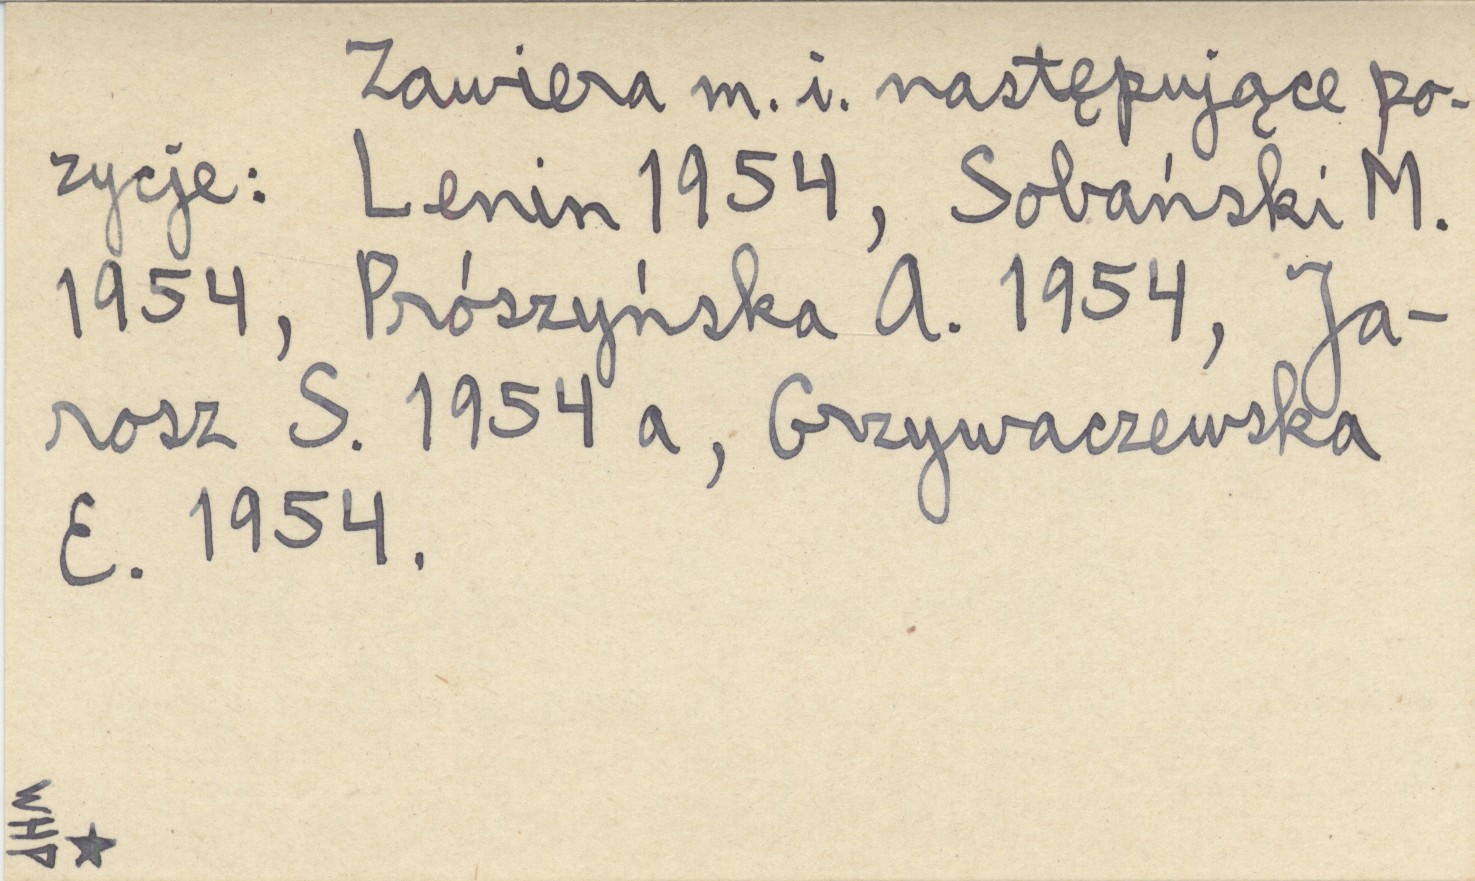 Zawiera m. i. następujące po-
zycje: Lenin 1954, Sobański M.
1954, Prószyńska A. 1954, Ja-
rosz S. 1954 a, Grzywaczewska
E. 1954.
WHP